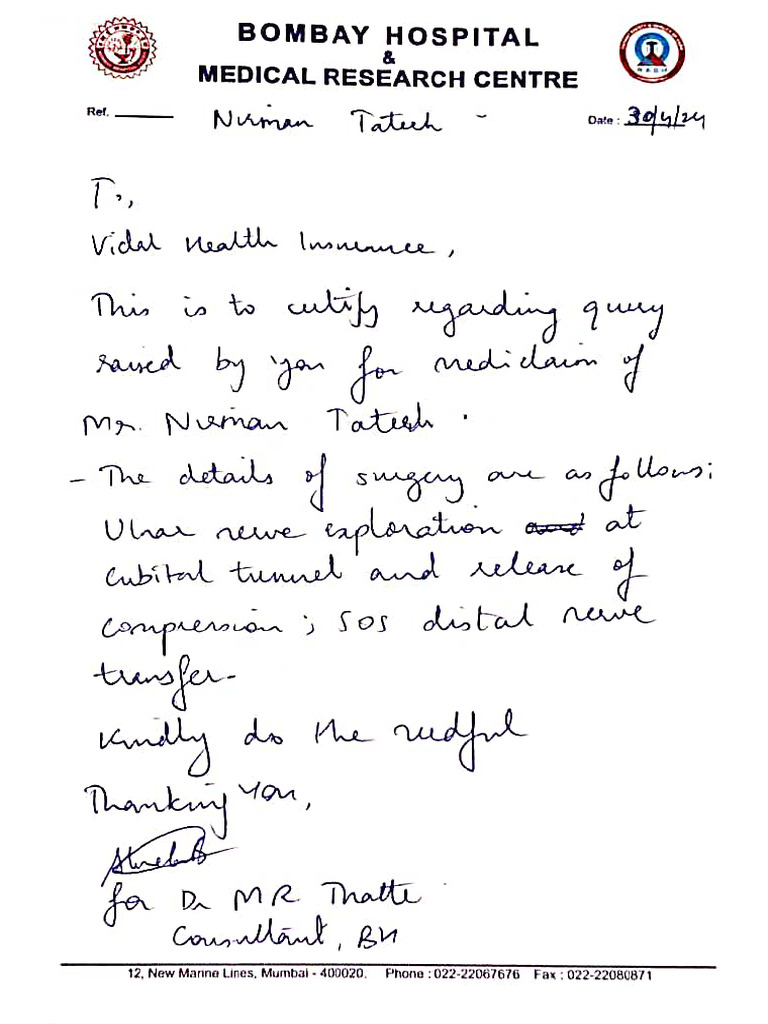 BOMBAY HOSPITAL
&
MEDICAL RESEARCH CENTRE
Ref.
Nirman Tatesh -
Date : 30/4/24
To,
Vidal Health Insurance,
This is to certify regarding query
raised by you for mediclaim of
Mr. Nirman Tatesh .
- The details of surgery are as follows:
Ulnar nerve exploration and at
cubital tunnel and release of
compression ; SOS distal nerve
transfer-
Kindly do the needful
Thanking You,
for Dr M R Thatte
Consultant, BH
12, New Marine Lines, Mumbai - 400020. Phone : 022-22067676 Fax : 022-22080871